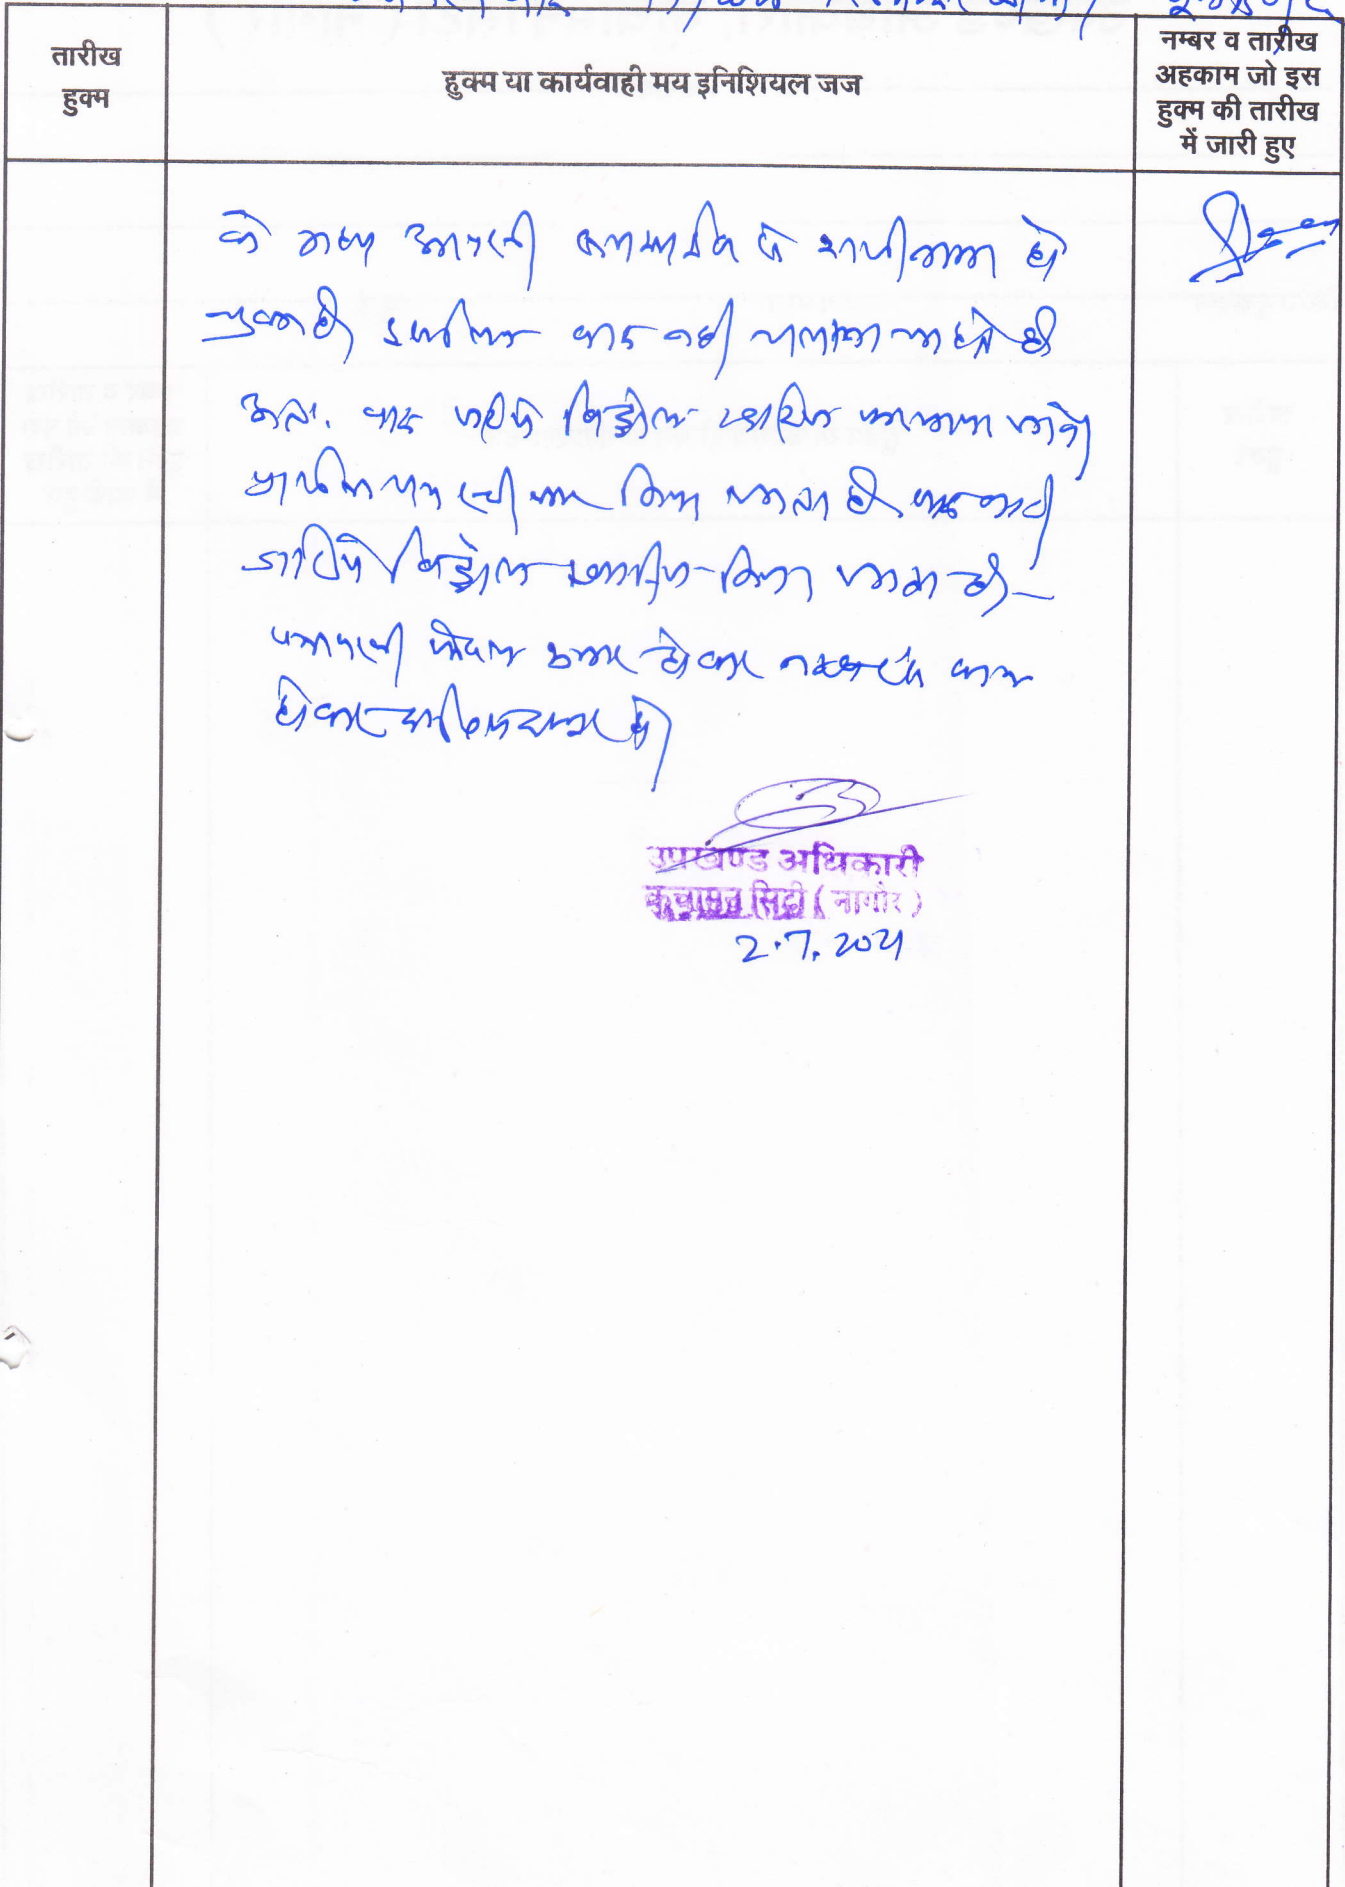 तारीख
हुक्म
हुक्म या कार्यवाही मय इनिशियल जज
नम्बर व तारीख
अहकाम जो इस
हुक्म की तारीख
में जारी हुए
के मध्य आपसी राजीनामा हो
चुका है। इसलिए वाद नहीं चलाना चाहते है
अतः वाद जरिये विड्रोल खारिज फरमाया जावे।
प्रार्थना पत्र स्वीकार किया जाता है वाद वादी
जरिये विड्रोल खारिज किया जाता है।
पत्रावली फैसल शुमार होकर नम्बर से कम
होकर दाखिल दफ्तर हो।
उपखण्ड अधिकारी
कुचामन सिटी ( नागौर )
2.7.2021